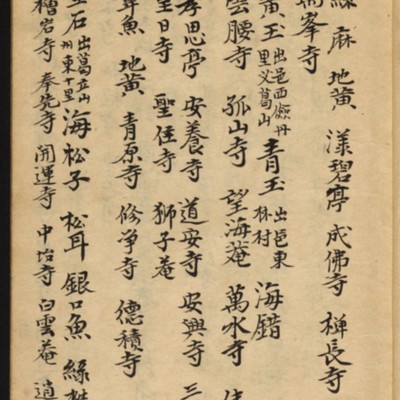 麻 地黄 漾碧亭 成佛寺 禅長寺
峯寺
黄玉 出邑西儉丹里义葛山 青玉 出邑東林村 海錯
雲腰寺 孤山寺 望海菴 萬水寺
孝思亭 安養寺 道安寺 安興寺 三
聖日寺 聖住寺 獅子菴
魚 地黄 青原寺 修净寺 德積寺
石 出葛立山州東十里 海松子 松耳 銀口魚 綠
檜岩寺 奉先寺 開運寺 中坮寺 白雲菴 逍